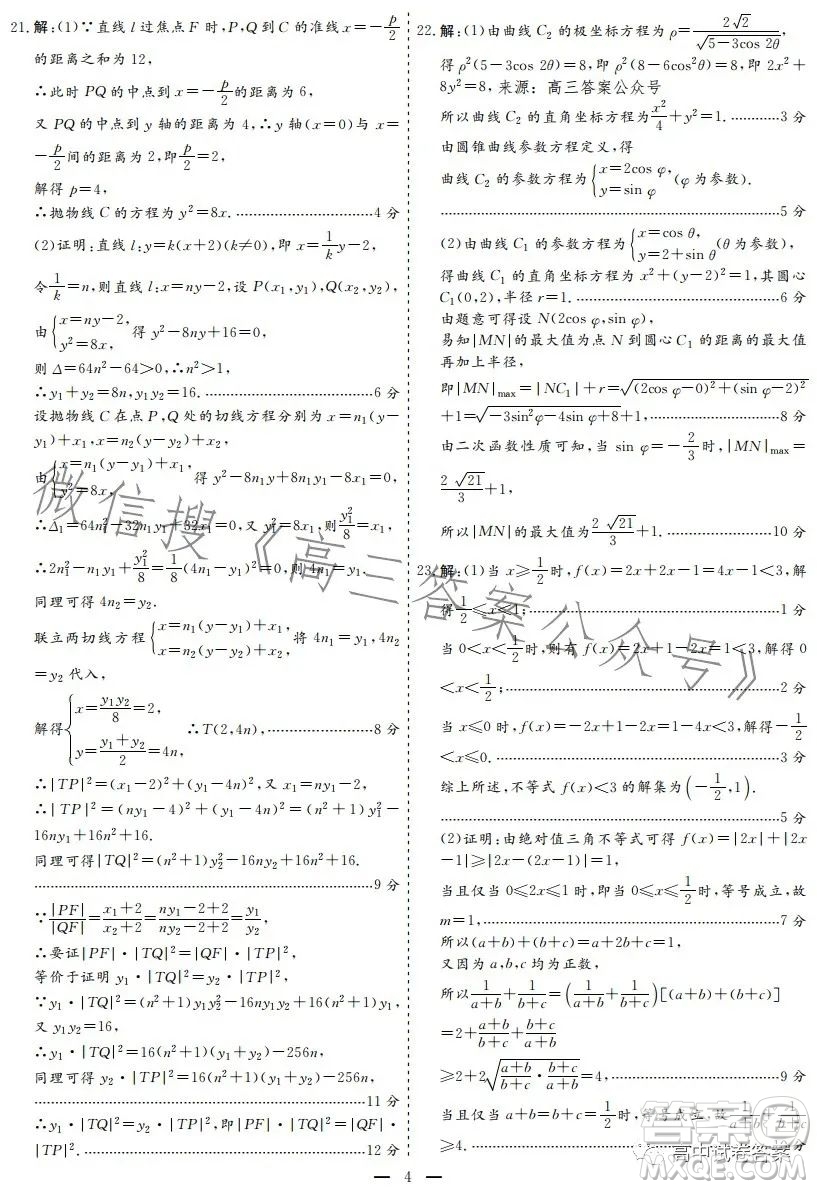 21.解:(1)∵直线 l 过焦点 F 时,P,Q 到 C 的准线 x=-p/2
的距离之和为 12,
∴此时 PQ 的中点到 x=-p/2 的距离为 6,
又 PQ 的中点到 y 轴的距离为 4,∴y 轴(x=0)与 x=
-p/2 间的距离为 2,即 p/2=2,
解得 p=4,
∴抛物线 C 的方程为 y²=8x. ……4 分
(2)证明:直线 l:y=k(x+2)(k≠0),即 x=1/k y-2,
令 1/k=n,则直线 l:x=ny-2,设 P(x₁,y₁),Q(x₂,y₂),
由{x=ny-2, y²=8x, 得 y²-8ny+16=0,
则 Δ=64n²-64>0,∴n²>1,
∴y₁+y₂=8n,y₁y₂=16. ……6 分
设抛物线 C 在点 P,Q 处的切线方程分别为 x=n₁(y-
y₁)+x₁,x=n₂(y-y₂)+x₂,
由{x=n₁(y-y₁)+x₁, y²=8x, 得 y²-8n₁y+8n₁y₁-8x₁=0,
∴Δ₁=64n₁²-32n₁y₁+32x₁=0,又 y₁²=8x₁,则 y₁²/8=x₁,
∴2n₁²-n₁y₁+y₁²/8=1/8(4n₁-y₁)²=0,∴4n₁=y₁.
同理可得 4n₂=y₂.
联立两切线方程{x=n₁(y-y₁)+x₁, x=n₂(y-y₂)+x₂, 将 4n₁=y₁,4n₂
=y₂ 代入,
解得{x=y₁y₂/8=2, y=(y₁+y₂)/2=4n, ∴T(2,4n), ……8 分
∴|TP|²=(x₁-2)²+(y₁-4n)²,又 x₁=ny₁-2,
∴|TP|²=(ny₁-4)²+(y₁-4n)²=(n²+1)y₁²-
16ny₁+16n²+16.
同理可得|TQ|²=(n²+1)y₂²-16ny₂+16n²+16.
……9 分
∵|PF|/|QF|=(x₁+2)/(x₂+2)=(ny₁-2+2)/(ny₂-2+2)=y₁/y₂,
∴要证|PF|·|TQ|²=|QF|·|TP|²,
等价于证明 y₁·|TQ|²=y₂·|TP|²,
∵y₁·|TQ|²=(n²+1)y₁y₂²-16ny₁y₂+16(n²+1)y₁,
又 y₁y₂=16,
∴y₁·|TQ|²=16(n²+1)(y₁+y₂)-256n,
同理可得 y₂·|TP|²=16(n²+1)(y₁+y₂)-256n,
……11 分
∴y₁·|TQ|²=y₂·|TP|²,即|PF|·|TQ|²=|QF|·
|TP|². ……12 分
22.解:(1)由曲线 C₂ 的极坐标方程为 ρ=2√2/√(5-3cos 2θ),
得 ρ²(5-3cos 2θ)=8,即 ρ²(8-6cos²θ)=8,即 2x²+
8y²=8, 来源:高三答案公众号
所以曲线 C₂ 的直角坐标方程为 x²/4+y²=1. ……3 分
由圆锥曲线参数方程定义,得
曲线 C₂ 的参数方程为{x=2cos φ, y=sin φ (φ 为参数).
……5 分
(2)由曲线 C₁ 的参数方程为{x=cos θ, y=2+sin θ (θ 为参数),
得曲线 C₁ 的直角坐标方程为 x²+(y-2)²=1,其圆心
C₁(0,2),半径 r=1. ……6 分
由题意可得设 N(2cos φ,sin φ),
易知|MN|的最大值为点 N 到圆心 C₁ 的距离的最大值
再加上半径,
即|MN|max=|NC₁|+r=√((2cos φ-0)²+(sin φ-2)²)
+1=√(-3sin²φ-4sin φ+8)+1, ……8 分
由二次函数性质可知,当 sin φ=-2/3 时,|MN|max=
2√21/3+1,
所以|MN|的最大值为 2√21/3+1. ……10 分
23.解:(1)当 x≥1/2 时,f(x)=2x+2x-1=4x-1<3,解
得 1/2≤x<1; ……1 分
当 0<x<1/2 时,则有 f(x)=2x+1-2x=1<3,解得 0
<x<1/2; ……2 分
当 x≤0 时,f(x)=-2x+1-2x=1-4x<3,解得-1/2
<x≤0. ……3 分
综上所述,不等式 f(x)<3 的解集为(-1/2,1).
……5 分
(2)证明:由绝对值三角不等式可得 f(x)=|2x|+|2x
-1|≥|2x-(2x-1)|=1,
当且仅当 0≤2x≤1 时,即当 0≤x≤1/2 时,等号成立,故
m=1, ……7 分
所以(a+b)+(b+c)=a+2b+c=1,
又因为 a,b,c 均为正数,
所以 1/(a+b)+1/(b+c)=(1/(a+b)+1/(b+c))[(a+b)+(b+c)]
=2+(a+b)/(b+c)+(b+c)/(a+b)
≥2+2√((a+b)/(b+c)·(b+c)/(a+b))=4, ……9 分
当且仅当 a+b=b+c=1/2 时,等号成立,故 1/(a+b)+1/(b+c)
≥4.
— 4 —
微信搜《高三答案公众号》
高中试卷答案
答案圈
MXQE.COM